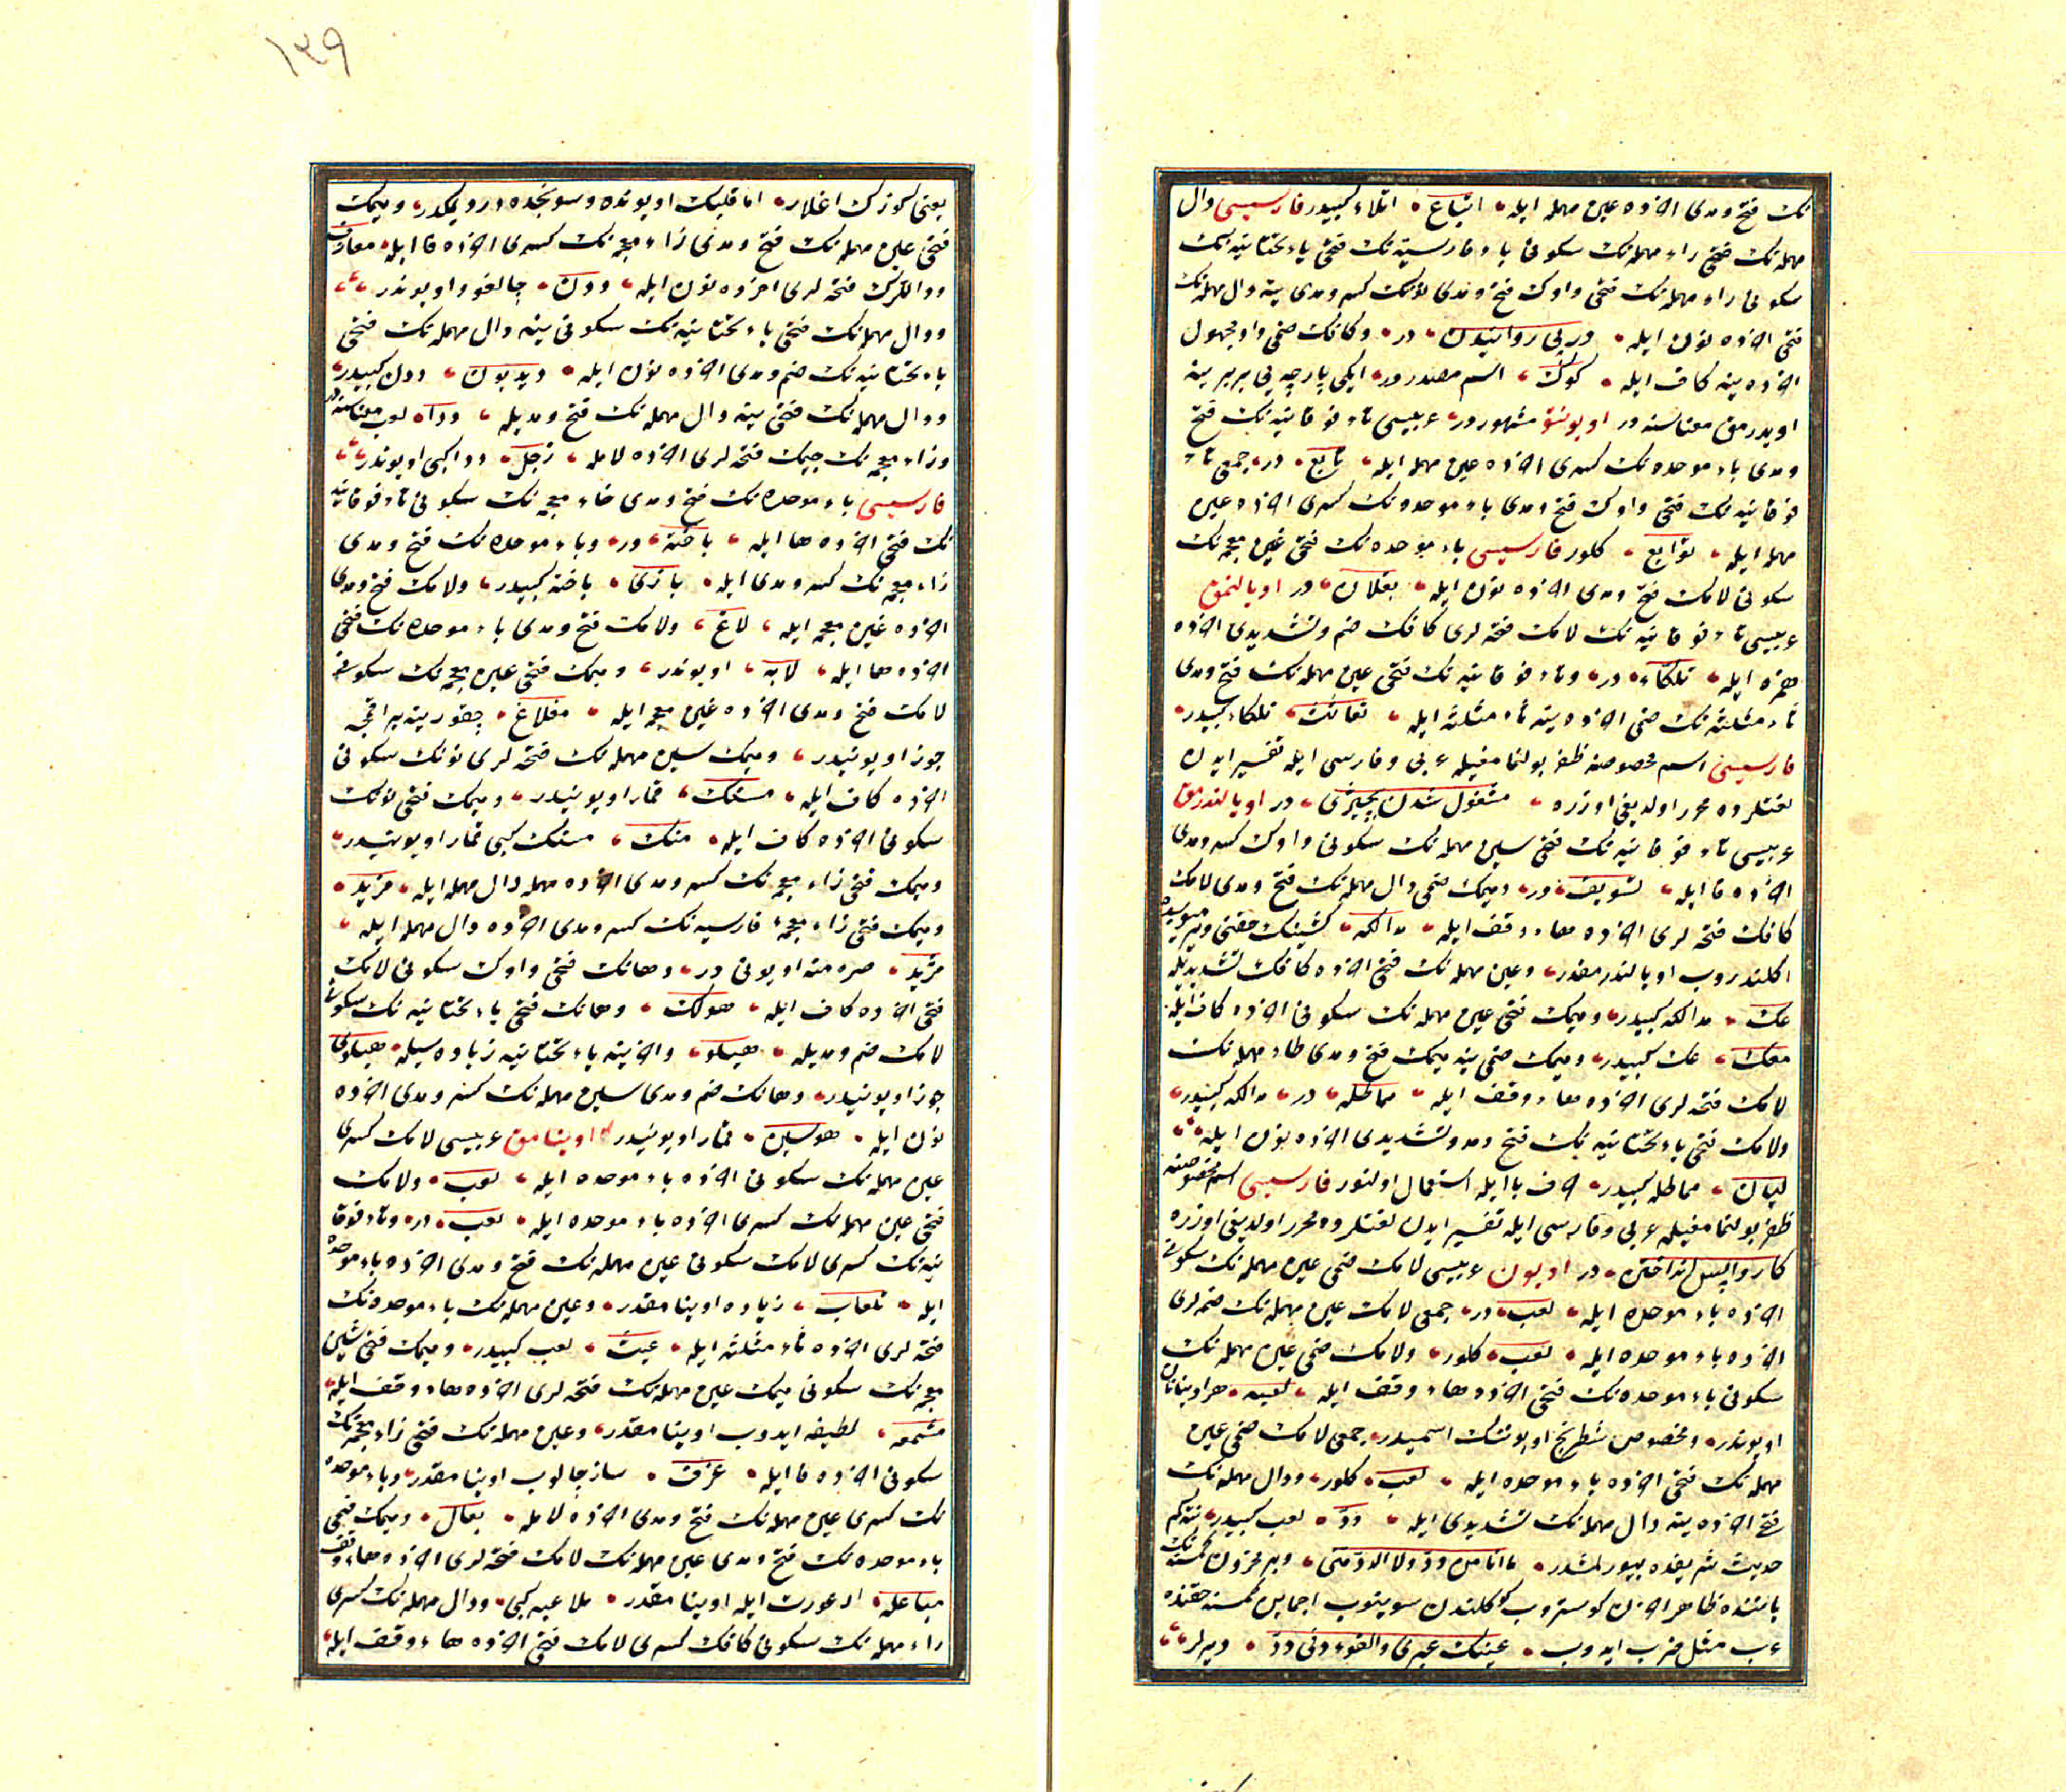 نك فتح ومدى اخرده عين مهمله ايله اتباع اتلاء كبيدر فارسيسى دال
مهمله نك ضمى راء مهمله نك سكونى باء فارسيه نك فتحى ياء تحتانيه نك
سكونى راء مهمله نك فتحى واوك فتح ومدى نونك كسر ومدى ينه دال مهمله نك
فتحى اخرده نون ايله در پى روانيدن در وكافك ضمى واو مجهول
اخرده ينه كاف ايله كوك اسم مصدردر ايكى پارچه يى بربرينه
اويدرمق معناسنه در اويونتو مشهوردر عربيسى تاء فوقانيه نك فتح
ومدى باء موحده نك كسرى اخرده عين مهمله ايله تابع در جمعى تاء
فوقانيه نك فتحى واوك فتح ومدى باء موحده نك كسرى اخرده عين
مهمله ايله توابع كلور فارسيسى باء موحده نك فتحى غين معجمه نك
سكونى لامك فتح ومدى اخرده نون ايله بغلان در اويالنمق
عربيسى تاء فوقانيه نك لامك فتحه لرى كافك ضم وتشديدى اخرده
همزه ايله تلكاء در وتاء فوقانيه نك فتحى عين مهمله نك فتح ومدى
ثاء مثلثه نك ضمى اخرده ينه ثاء مثلثه ايله تعاثث تلكاء كبيدر
فارسيسى اسم مخصوصنه ظفر بولنمامغيله عربى وفارسى ايله تفسير ايدن
لغتلرده محرر اولديغى اوزره مشغول شدن بچيزى در اويالندرمق
عربيسى تاء فوقانيه نك فتحى سين مهمله نك سكونى واوك كسر ومدى
اخرده فا ايله تسويف در وميمك ضمى دال مهمله نك فتح ومدى لامك
كافك فتحه لرى اخرده هاء وقف ايله مدالكه كشينك حقنى ويرميوب
اكلندروب اويالندرمقدر وعين مهمله نك فتحى اخرده كافك تشديديله
عك مدالكه كبيدر وميمك فتحى عين مهمله نك سكونى اخرده كاف ايله
معك عك كبيدر وميمك ضمى ينه ميمك فتح ومدى طاء مهمله نك
لامك فتحه لرى اخرده هاء وقف ايله مماطله در مدالكه كبيدر
ولامك فتحى ياء تحتانيه نك فتح ومد وتشديدى اخرده نون ايله
ليان مماطله كبيدر حرف با ايله استعمال اولنور فارسيسى اسم مخصوصنه
ظفر بولنمامغيله عربى وفارسى ايله تفسير ايدن لغتلرده محرر اولديغى اوزره
كار واپس انداختن در اويون عربيسى لامك فتحى عين مهمله نك سكونى
اخرده باء موحده ايله لعب در جمعى لامك عين مهمله نك ضمه لرى
اخرده باء موحده ايله لعب كلور ولامك ضمى عين مهمله نك
سكونى باء موحده نك فتحى اخرده هاء وقف ايله لعبه هر اوينانان
اويوندر ومخصوص شطرنج اويوننك اسميدر جمعى لامك ضمى عين
مهمله نك فتحى اخرده باء موحده ايله لعب كلور ودال مهمله نك
فتح اخرده ينه دال مهمله نك تشديدى ايله دد لعب كبيدر نته كم
حديث شريفده بيورلمشدر ما انا من دد ولا الدد منى وبر محزون كمسنه نك
باشنده ظاهر حزن كوستروب كوكلندن سوينوب اجماين كمسنه حقنده
عرب مثل ضرب ايدوب عينك عبرى والفؤاد فى دد ديرلر
١٣٩
يعنى كوزك اغلار اما قلبك اويونده وسونجده در ديمكدر وميمك
فتحى عين مهمله نك فتح ومدى زاء معجمه نك كسرى اخرده فا ايله معازف
ودالرك فتحه لرى اخرده نون ايله ددن چالغو واويوندر
ودال مهمله نك فتحى ياء تحتانيه نك سكونى ينه دال مهمله نك فتحى
باء تحتانيه نك ضم ومدى اخرده نون ايله ديدبون ددن كبيدر
ودال مهمله نك فتحى ينه دال مهمله نك فتح ومديله ددا لعب معناسنه در
وزاء معجمه نك جيمك فتحه لرى اخرده لامله زجل ددا كبى اويوندر
فارسيسى باء موحده نك فتح ومدى خاء معجمه نك سكونى تاء فوقانيه
نك فتحى اخرده ها ايله باخته در وباء موحده نك فتح ومدى
زاء معجمه نك كسر ومدى ايله بازى باخته كبيدر ولامك فتح ومدى
اخرده غين معجمه ايله لاغ ولامك فتح ومدى باء موحده نك فتحى
اخرده ها ايله لابه اويوندر وميمك فتحى غين معجمه نك سكونى
لامك فتح ومدى اخرده غين معجمه ايله مغلاغ چقورينه براقجه
جوز اويونيدر وميمك سين مهمله نك فتحه لرى نونك سكونى
اخرده كاف ايله مسنك قمار اويونيدر وميمك فتحى نونك
سكونى اخرده كاف ايله منك مسنك كبى قمار اويونيدر
وميمك فتحى زاء معجمه نك كسر ومدى اخرده مهمله دال مهمله ايله مزيد
وميمك فتحى زاء معجمهء فارسيه نك كسر ومدى اخرده دال مهمله ايله
مژيد صره منه اويونى در وهانك فتحى واوك سكونى لامك
فتحى اخرده كاف ايله هولك وهانك فتحى ياء تحتانيه نك سكونى
لامك ضم ومديله هيلو واخرينه ياء تحتانيه زياده سيله هيلوى
جوز اويونيدر وهانك ضم ومدى سين مهمله نك كسر ومدى اخرده
نون ايله هوسين قمار اويونيدر اوينامق عربيسى لامك كسرى
عين مهمله نك سكونى اخرده باء موحده ايله لعب ولامك
فتحى عين مهمله نك كسرى اخرده باء موحده ايله لعب در وتاء فوقا
نيه نك كسرى لامك سكونى عين مهمله نك فتح ومدى اخرده باء موحده
ايله تلعاب زياده اوينامقدر وعين مهمله نك باء موحده نك
فتحه لرى اخرده ثاء مثلثه ايله عبث لعب كبيدر وميمك فتحى شين
معجمه نك سكونى ميمك عين مهمله نك فتحه لرى اخرده هاء وقف ايله
مشمعه لطيفه ايدوب اوينامقدر وعين مهمله نك فتحى زاء معجمه نك
سكونى اخرده فا ايله عزف ساز چالوب اوينامقدر وباء موحده
نك كسرى عين مهمله نك فتح ومدى اخرده لامله بعال وميمك ضمى
باء موحده نك فتح ومدى عين مهمله نك لامك فتحه لرى اخرده هاء وقف
مباعله ار عورت ايله اوينامقدر ملاعبه كبى ودال مهمله نك كسرى
راء مهمله نك سكونى كافك كسرى لامك فتحى اخرده هاء وقف ايله